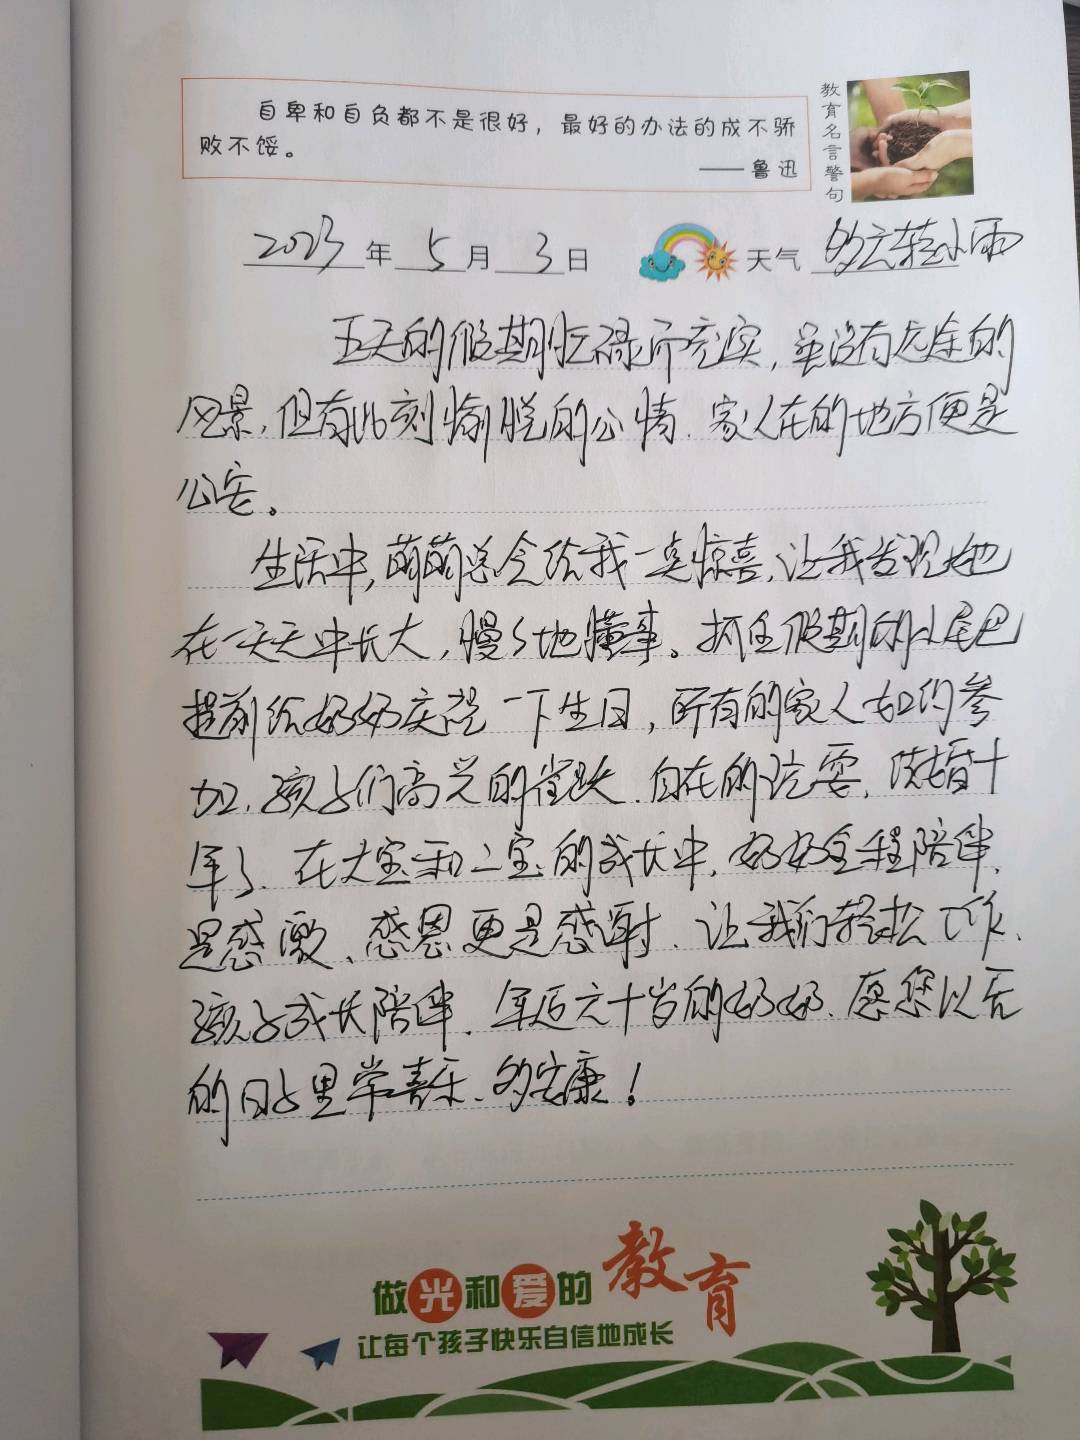 自卑和自负都不是很好，最好的办法的成不骄
败不馁。
——鲁迅
教育名言警句
2023年5月3日 天气 多云转小雨
五天的假期忙碌而充实，虽没有沿途的
风景，但有此刻愉悦的心情．家人在的地方便是
心安。
生活中，萌萌总会给我一些惊喜，让我发现她
在一天天中长大，慢慢地懂事。抓住假期的小尾巴
提前给奶奶庆祝一下生日，所有的家人如约参
加．孩子们高兴的雀跃．自在的玩耍．结婚十
年了．在大宝和二宝的成长中．奶奶全程陪伴．
是感激、感恩更是感谢．让我们轻松工作、
孩子成长陪伴．年近六十岁的奶奶．愿您以后
的日子里常喜乐、多安康！
做光和爱的教育
让每个孩子快乐自信地成长